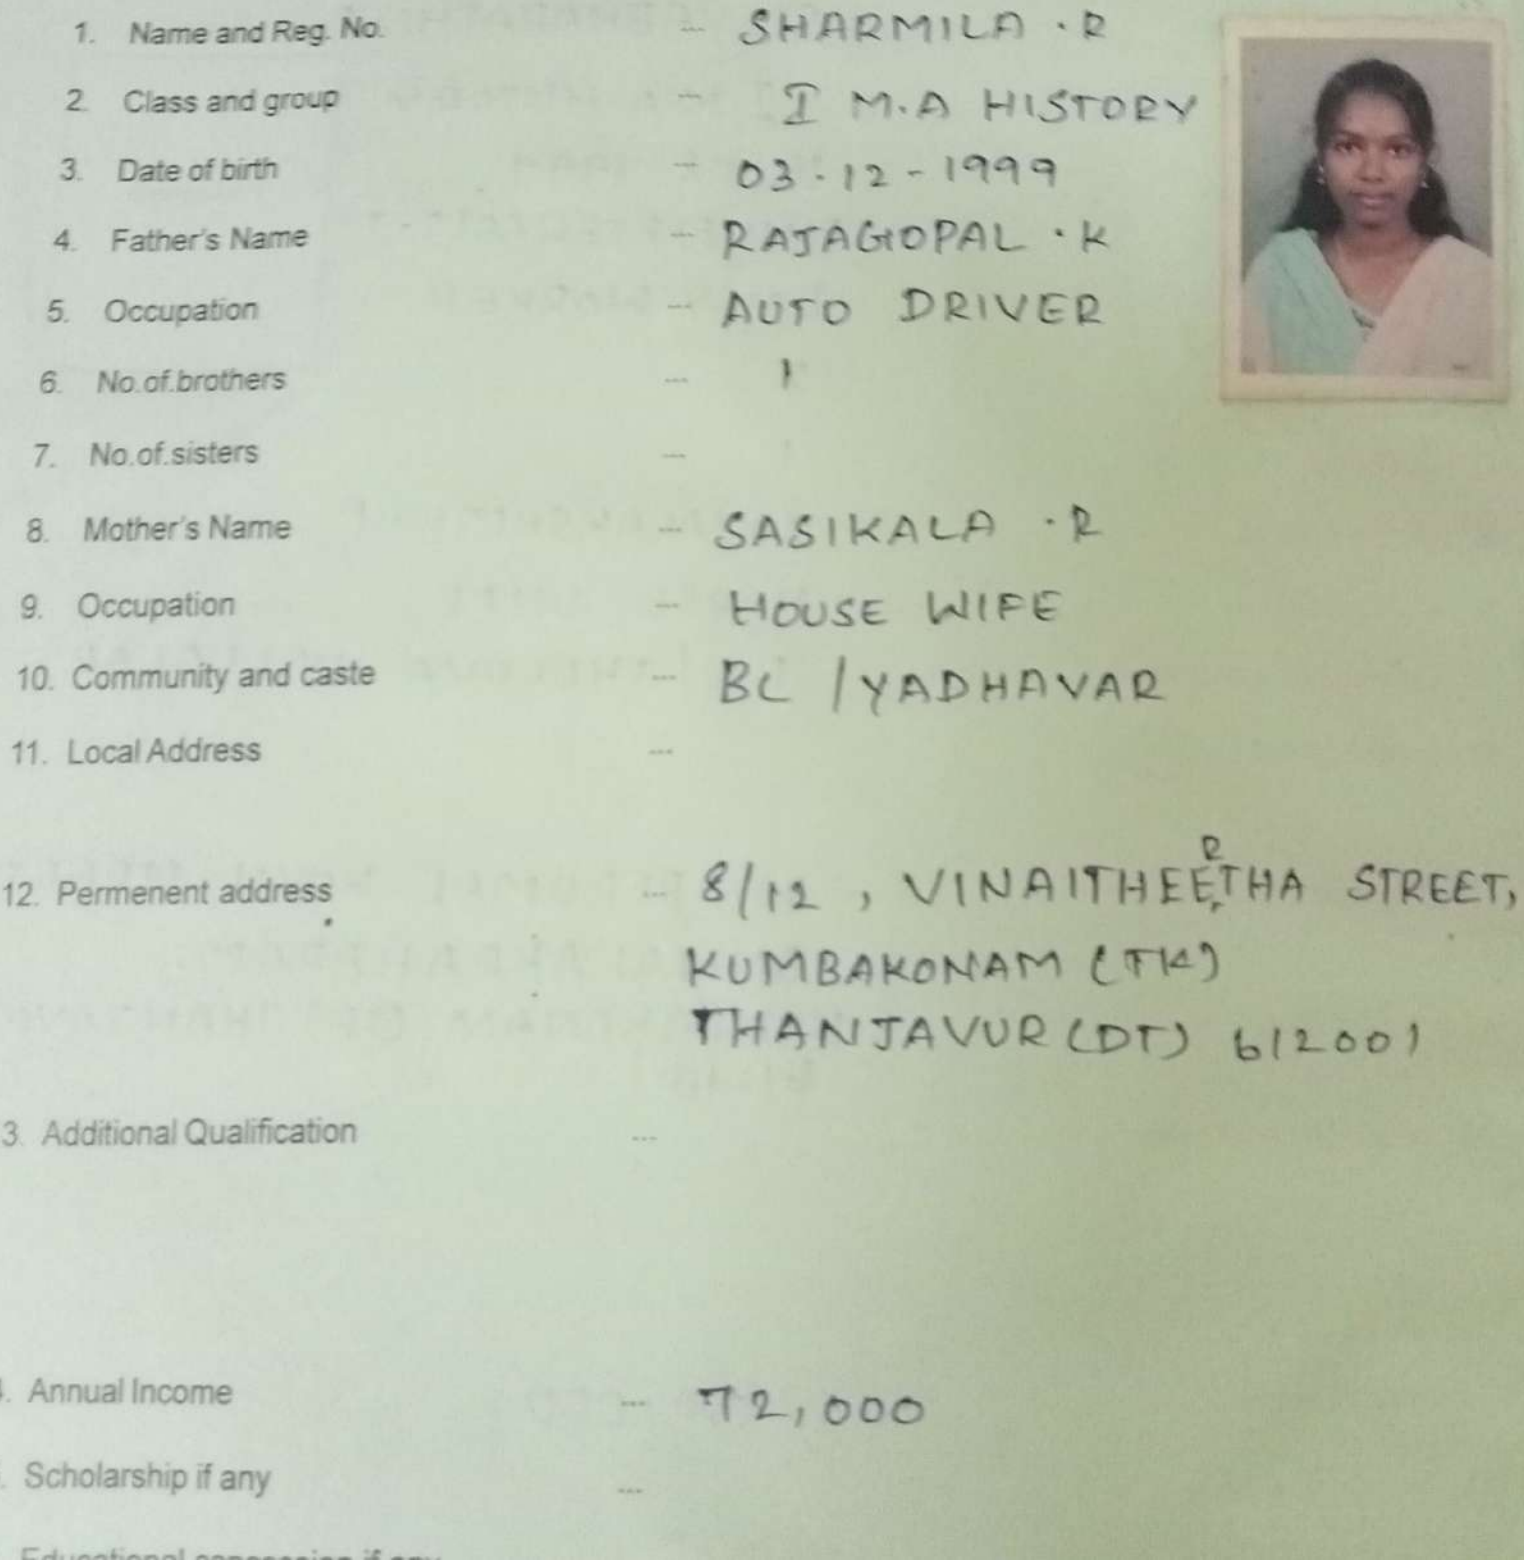 1. Name and Reg. No. --- SHARMILA . R
2. Class and group --- I M.A HISTORY
3. Date of birth --- 03-12-1999
4. Father's Name --- RAJAGOPAL . K
5. Occupation --- AUTO DRIVER
6. No.of.brothers --- 1
7. No.of.sisters ---
8. Mother's Name --- SASIKALA . R
9. Occupation --- HOUSE WIFE
10. Community and caste --- BC / YADHAVAR
11. Local Address ---
12. Permenent address --- 8/12, VINAITHEERTHA STREET,
KUMBAKONAM (TK)
THANJAVUR (DT) 612001
3. Additional Qualification ---
. Annual Income --- 72,000
. Scholarship if any ---
Educational concession if any